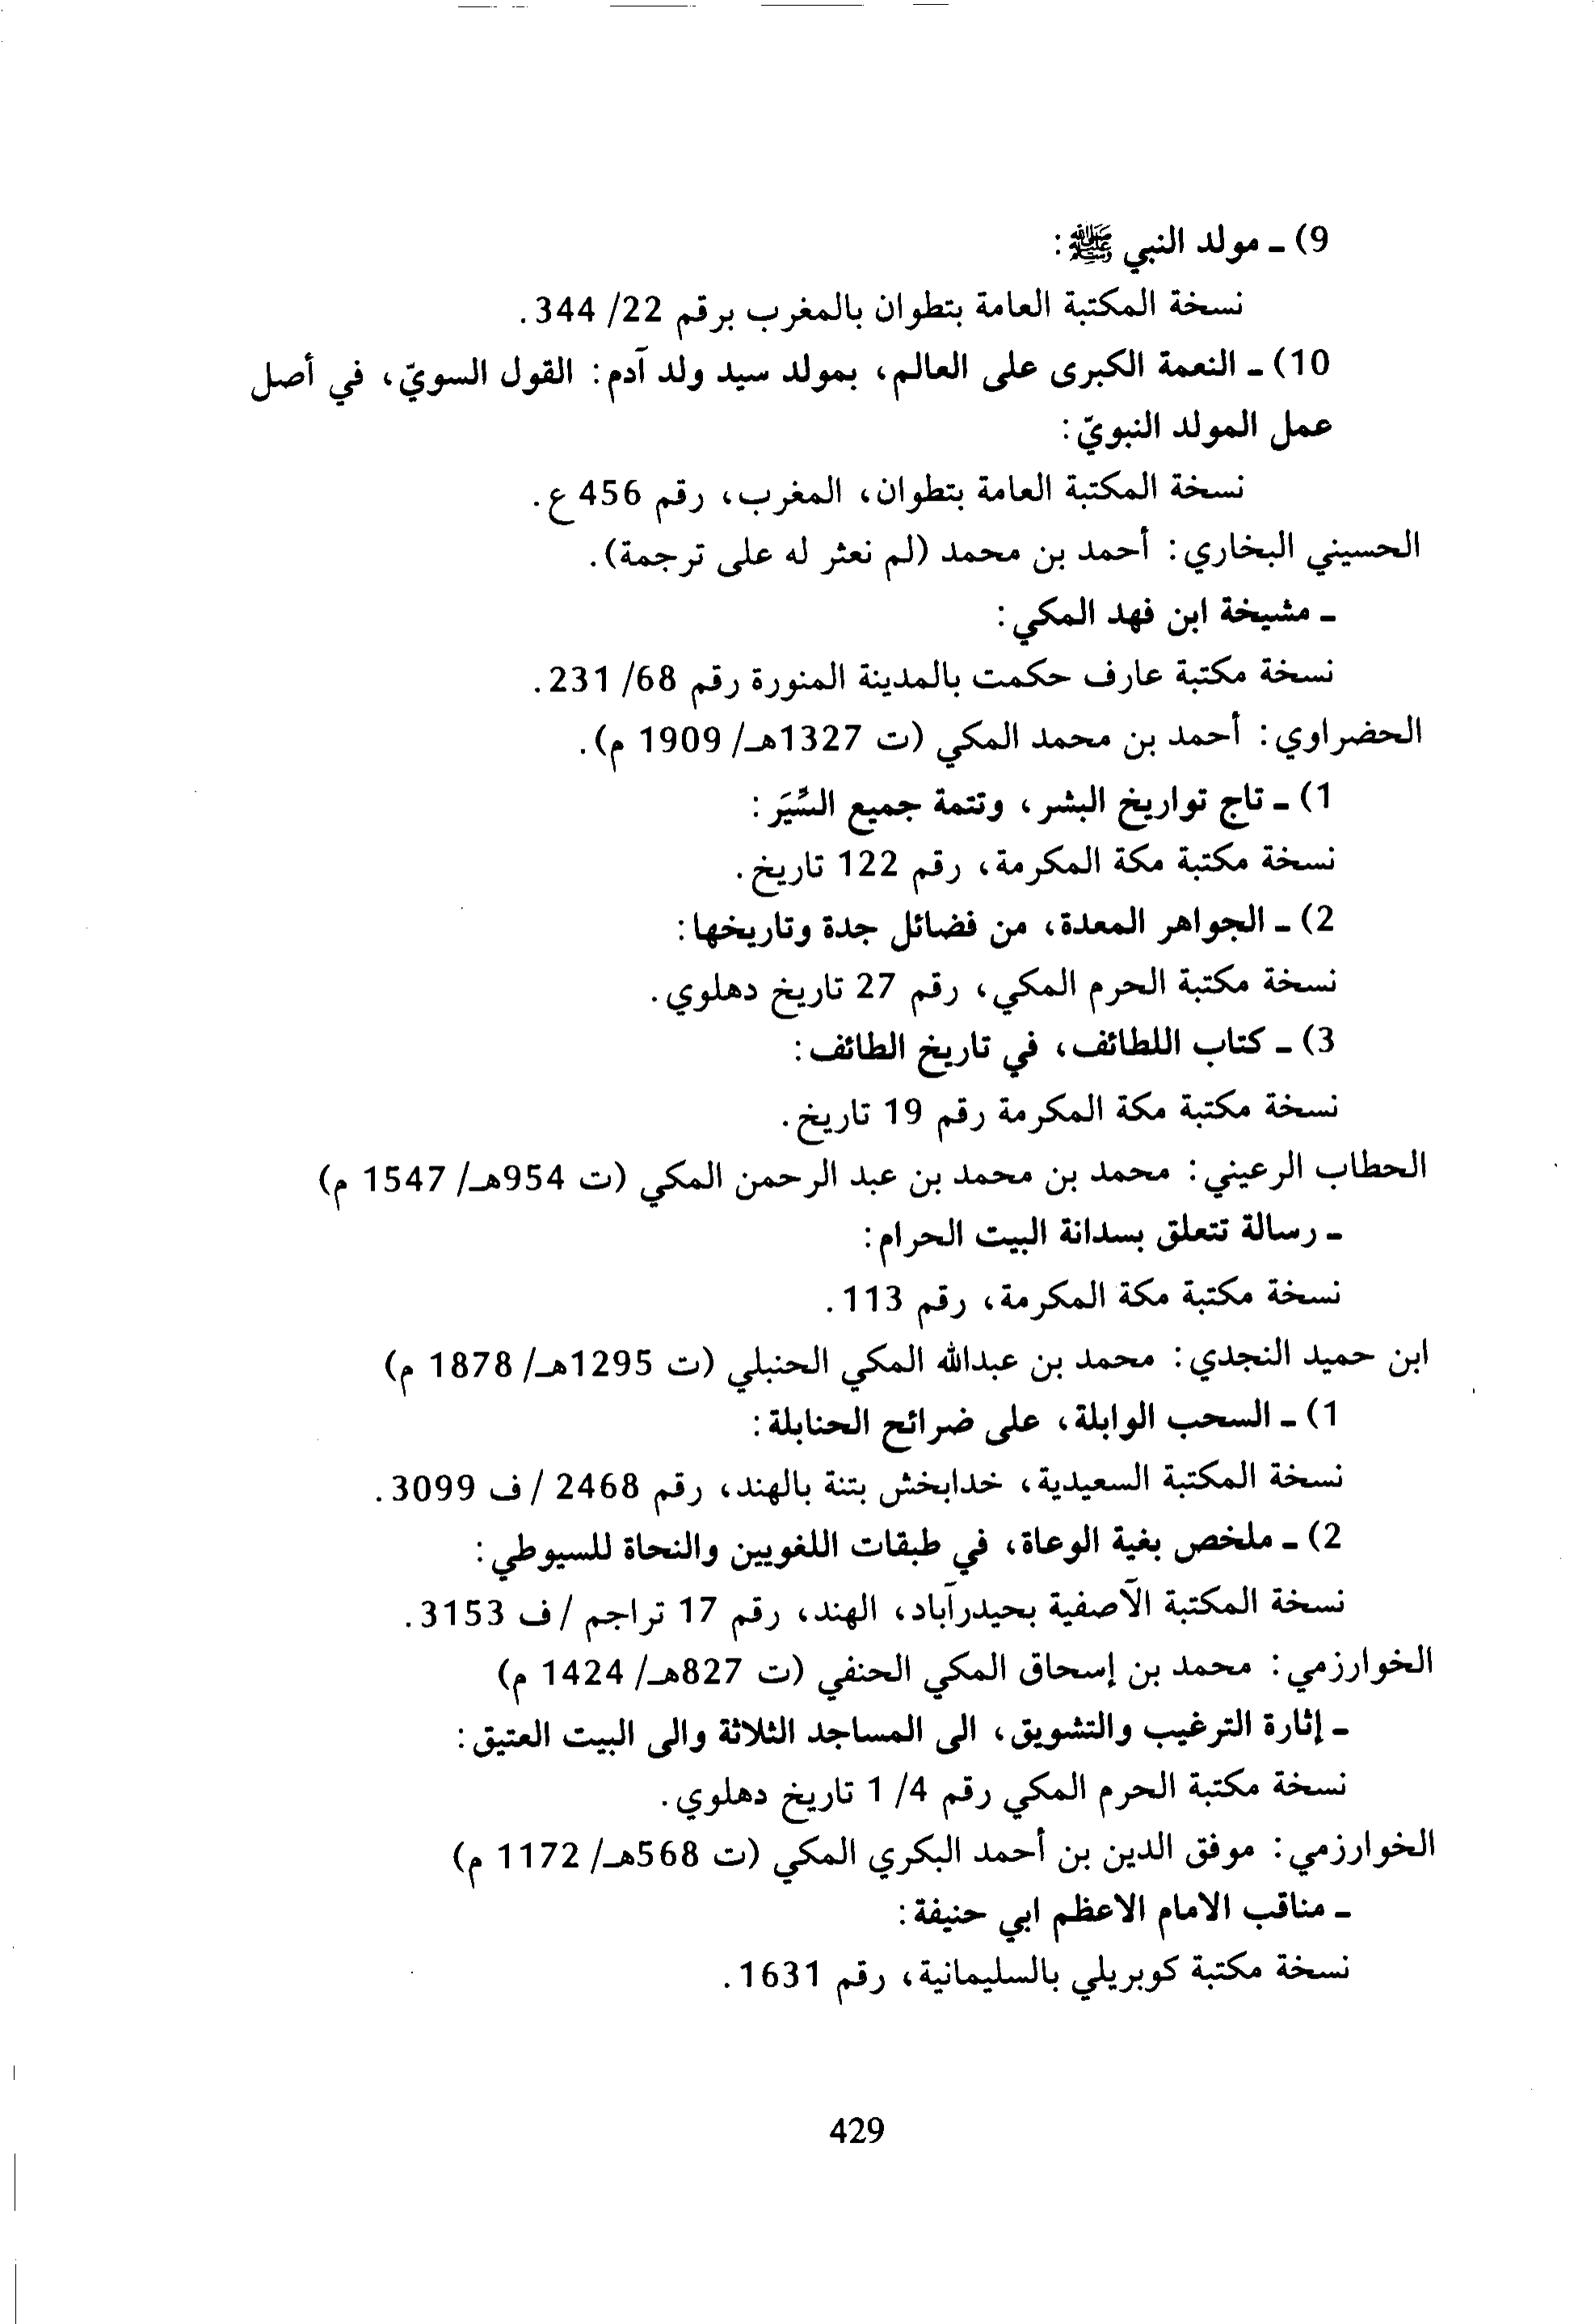 9) ـ مولد النبي ﷺ:
نسخة المكتبة العامة بتطوان بالمغرب برقم 22/ 344.
10) ـ النعمة الكبرى على العالم، بمولد سيد ولد آدم: القول السويّ، في أصل
عمل المولد النبويّ:
نسخة المكتبة العامة بتطوان، المغرب، رقم 456 ع.
الحسيني البخاري: أحمد بن محمد (لم نعثر له على ترجمة).
ـ مشيخة ابن فهد المكي:
نسخة مكتبة عارف حكمت بالمدينة المنورة رقم 68/ 231.
الحضراوي: أحمد بن محمد المكي (ت 1327هـ/ 1909 م).
1) ـ تاج تواريخ البشر، وتتمة جميع السِّيَر:
نسخة مكتبة مكة المكرمة، رقم 122 تاريخ.
2) ـ الجواهر المعدة، من فضائل جدة وتاريخها:
نسخة مكتبة الحرم المكي، رقم 27 تاريخ دهلوي.
3) ـ كتاب اللطائف، في تاريخ الطائف:
نسخة مكتبة مكة المكرمة رقم 19 تاريخ.
الحطاب الرعيني: محمد بن محمد بن عبد الرحمن المكي (ت 954هـ/ 1547 م)
ـ رسالة تتعلق بسدانة البيت الحرام:
نسخة مكتبة مكة المكرمة، رقم 113.
ابن حميد النجدي: محمد بن عبدالله المكي الحنبلي (ت 1295هـ/ 1878 م)
1) ـ السحب الوابلة، على ضرائح الحنابلة:
نسخة المكتبة السعيدية، خدابخش بتنة بالهند، رقم 2468 / ف 3099.
2) ـ ملخص بغية الوعاة، في طبقات اللغويين والنحاة للسيوطي:
نسخة المكتبة الآصفية بحيدرآباد، الهند، رقم 17 تراجم / ف 3153.
الخوارزمي: محمد بن إسحاق المكي الحنفي (ت 827هـ/ 1424 م)
ـ إثارة الترغيب والتشويق، الى المساجد الثلاثة والى البيت العتيق:
نسخة مكتبة الحرم المكي رقم 4/ 1 تاريخ دهلوي.
الخوارزمي: موفق الدين بن أحمد البكري المكي (ت 568هـ/ 1172 م)
ـ مناقب الامام الاعظم ابي حنيفة:
نسخة مكتبة كوبريلي بالسليمانية، رقم 1631.
429